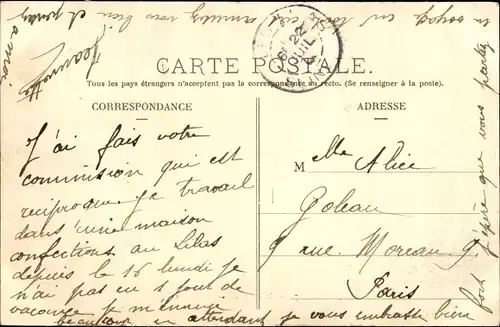 CARTE POSTALE.
Tous les pays étrangers n'acceptent pas la correspondance au recto. (Se renseigner à la poste).
CORRESPONDANCE
ADRESSE
J'ai fais votre
commission qui est
reciproque. Je travail
dans une maison
confections au Lilas
depuis le 16 lundi je
n'ai pas eu 1 jour de
vacance je m'ennuie
beaucoup en attendant je vous embrasse bien
fort J'éspère que vous
en voyage
amusez vous bien et
a moi
Jeannette
Melle Alice
9 rue Moreau 9.
Paris
22
JUIL